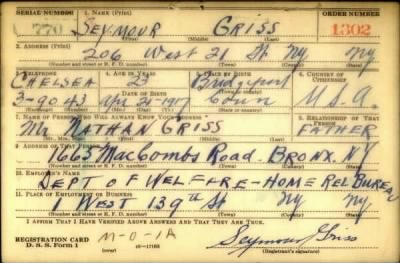 SERIAL NUMBER 1. NAME (Print) ORDER NUMBER
770 SEYMOUR GRISS 1302
(First) (Middle) (Last)
2. ADDRESS (Print)
206 West 21 St NY NY
(Number and street or R. F. D. number) (Town) (County) (State)
3. TELEPHONE 4. AGE IN YEARS 5. PLACE OF BIRTH 6. COUNTRY OF CITIZENSHIP
CHELSEA 23 Bridgeport
DATE OF BIRTH (Town or county)
3-9043 Apr 21-1917 Conn U.S.A.
(Exchange) (Number) (Mo.) (Day) (Yr.) (State or country)
7. NAME OF PERSON WHO WILL ALWAYS KNOW YOUR ADDRESS 8. RELATIONSHIP OF THAT PERSON
Mr NATHAN GRISS FATHER
(Mr., Mrs., Miss) (First) (Middle) (Last)
9. ADDRESS OF THAT PERSON
1665 MacCombs Road. BRONX. N.Y.
(Number and street or R. F. D. number) (Town) (County) (State)
10. EMPLOYER'S NAME
DEPT OF WELFARE-HOME REL BUREAU
11. PLACE OF EMPLOYMENT OR BUSINESS
1 WEST 139th St NY NY.
(Number and street or R. F. D. number) (Town) (County) (State)
I AFFIRM THAT I HAVE VERIFIED ABOVE ANSWERS AND THAT THEY ARE TRUE.
REGISTRATION CARD M-O-1A Seymour Griss
D. S. S. Form 1 (over) 16-17105 (Registrant's signature)